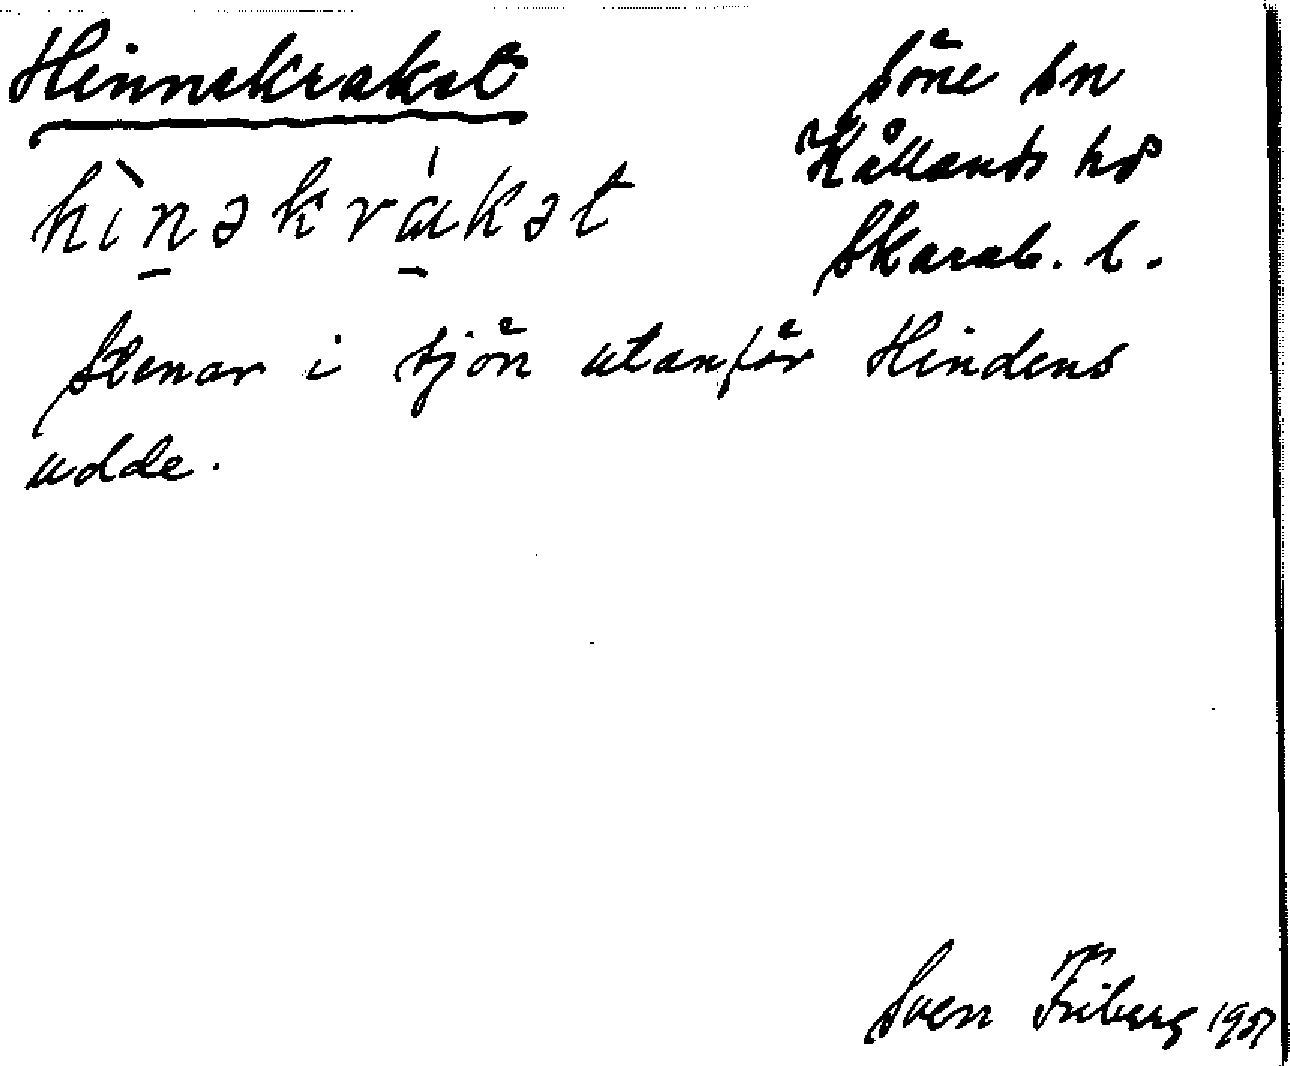 Hinnekraket
Söne sn
Kållands hd
Skarab. l.
hìnəkrákət
Stenar i sjön utanför Hindens
udde.
Sven Friberg 1957